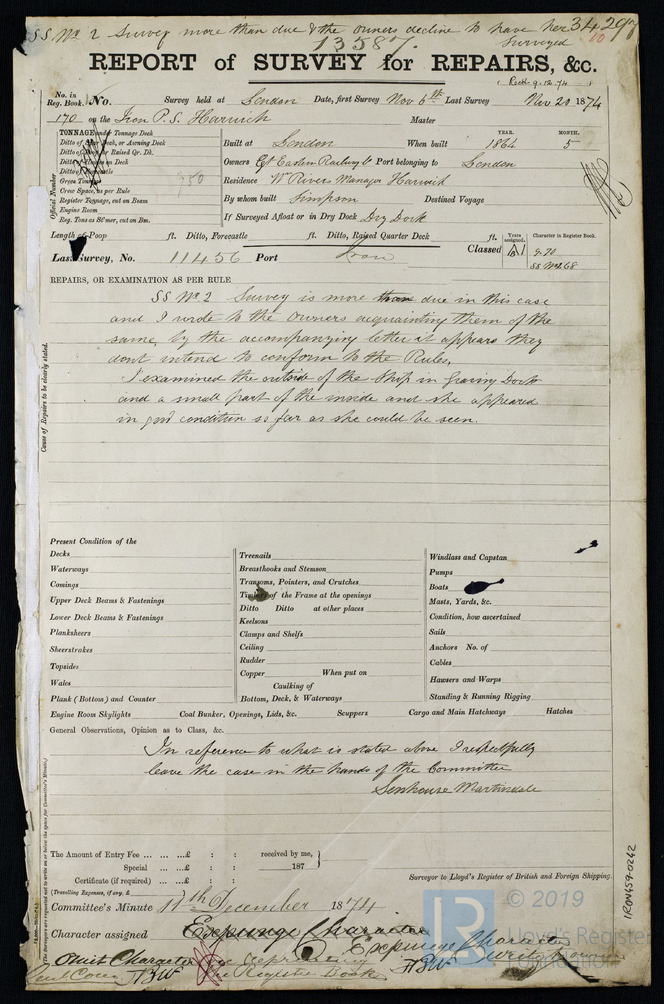 SS No 2 Survey more than due & the owners decline to have her Surveyed
34297
13587.
10
REPORT OF SURVEY for REPAIRS, &c.
(Recd 9.12.74)
No. in Reg. Book. No. Survey held at London Date, first Survey Nov 6th Last Survey Nov 20 1874
170 on the Iron P.S. Harwich Master
TONNAGE under Tonnage Deck
Ditto of Deck, or Awning Deck
Ditto of or Raised Qr. Dk.
Ditto on Deck
Ditto of
Gross Tonnage 750
Crew Space, as per Rule
Register Tonnage, cut on Beam
Engine Room
Reg. Tons as St'mer, cut on Bm.
Official Number
Built at London When built YEAR. 1864 MONTH. 5
Owners Gt Eastern Railway Co Port belonging to London
Residence Manager Harwich
By whom built Simpson Destined Voyage
If Surveyed Afloat or in Dry Dock Dry Dock
Length of Poop ft. Ditto, Forecastle ft. Ditto, Raised Quarter Deck ft.
Years assigned. Character in Register Book.
Last Survey, No. 11456 Port Iron Classed A1 9.70
SS 68
REPAIRS, OR EXAMINATION AS PER RULE
SS No 2 Survey is more than due in this case
and I wrote to the owners acquainting them of the
same, by the accompanying letter it appears they
dont intend to conform to the Rules.
I examined the outside of the Ship in Graving Dock
and a small part of the inside and she appeared
in good condition as far as she could be seen.
Cause of Repairs to be clearly stated.
Present Condition of the
Decks
Waterways
Comings
Upper Deck Beams & Fastenings
Lower Deck Beams & Fastenings
Planksheers
Sheerstrakes
Topsides
Wales
Plank (Bottom) and Counter
Treenails
Breasthooks and Stemson
Transoms, Pointers, and Crutches
Timbers of the Frame at the openings
Ditto Ditto at other places
Keelsons
Clamps and Shelfs
Ceiling
Rudder
Copper When put on
Caulking of
Bottom, Deck, & Waterways
Windlass and Capstan
Pumps
Boats
Masts, Yards, &c.
Condition, how ascertained
Sails
Anchors No. of
Cables
Hawsers and Warps
Standing & Running Rigging
Engine Room Skylights Coal Bunker, Openings, Lids, &c. Scuppers Cargo and Main Hatchways Hatches
General Observations, Opinion as to Class, &c.
In reference to what is stated above I respectfully
leave the case in the hands of the Committee
Senhouse Martindale
The Amount of Entry Fee ... ... ...£ : : received by me,
Special ... ...£ : : 187
Certificate (if required) ... ...£ : :
(Travelling Expenses, if any, £ )
Surveyor to Lloyd's Register of British and Foreign Shipping.
Committee's Minute 11th December 1874
Character assigned Expunge Character
Expunge Character
Omit Character
the Register Book
HBW
HBW
IRON459-0242
© 2019
LR
Lloyd's Register
Foundation